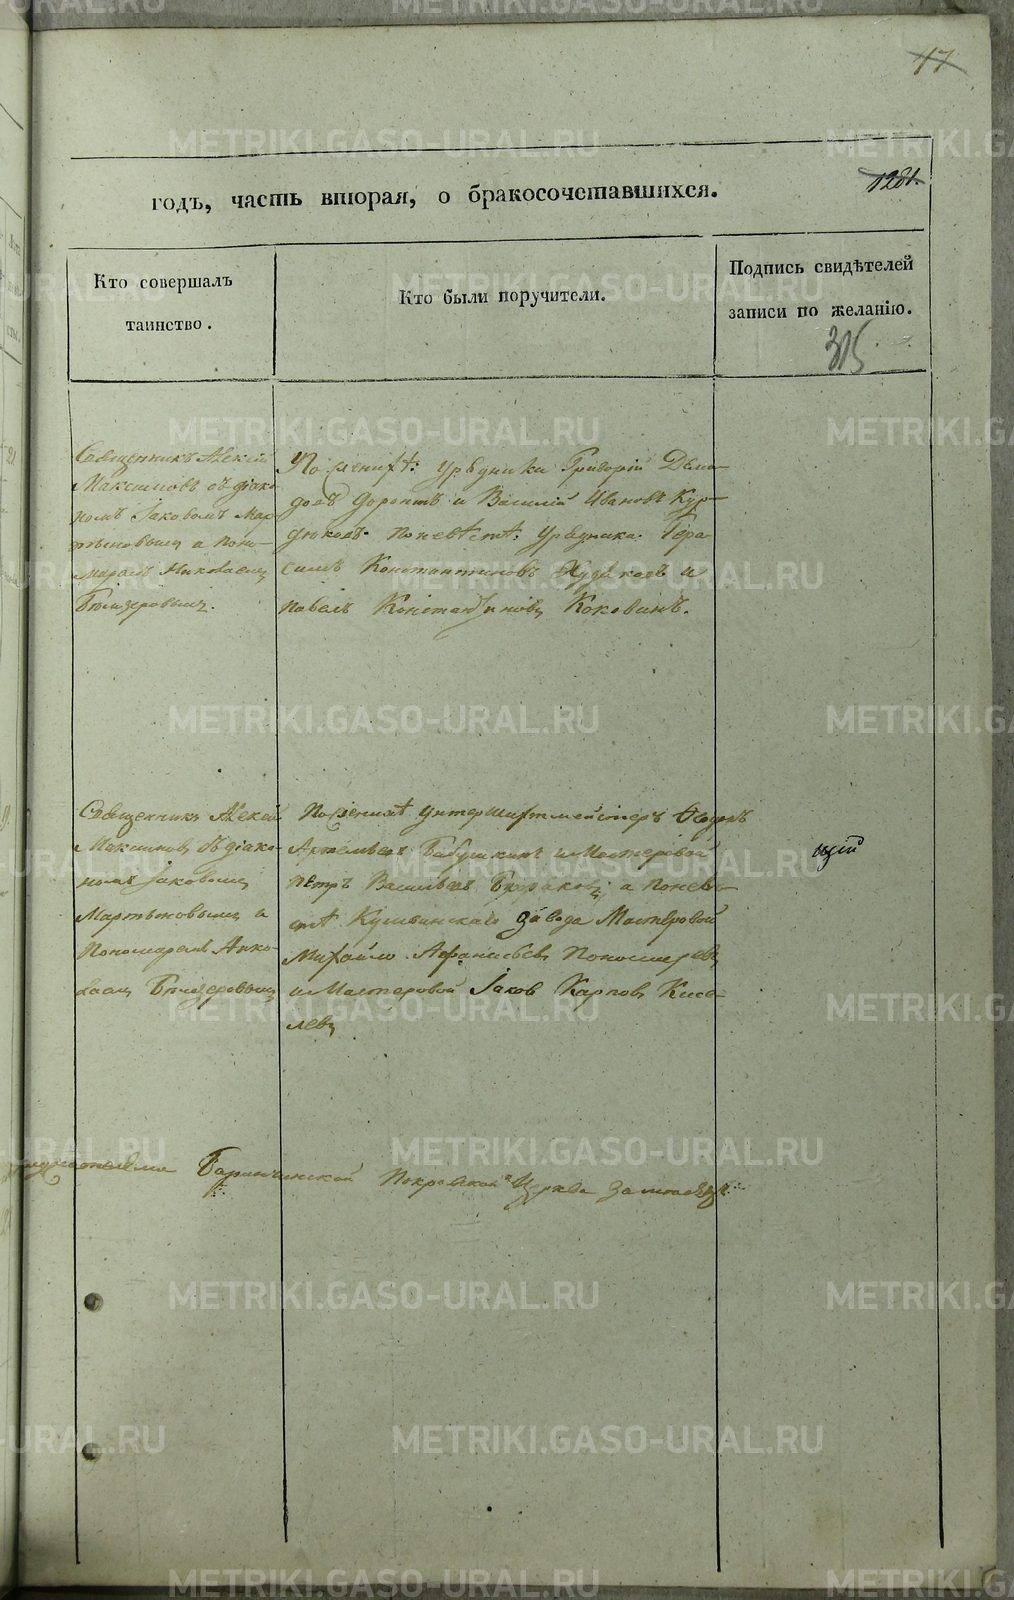 17
1281.
годъ, часть вторая, о бракосочетавшихся.
Кто совершалъ
таинство.
Кто были поручители.
Подпись свидѣтелей
записи по желанію.
315
Священникъ Алексій
Максимовъ съ діако-
номъ Іаковомъ Мар-
тыновымъ и поно-
маремъ Николаемъ
По женихѣ: урядники Григорій Демидовъ
и Василій Ивановъ Кур-
дюковъ. по невѣстѣ: урядника Гера-
симъ Константиновъ Худяковъ и
павелъ Константиновъ Коковинъ.
Священникъ Алексій
Максимовъ съ діако-
номъ Іаковомъ
Мартыновымъ и
Пономаремъ Нико-
лаемъ
По женихѣ унтершихтмейстеръ Ѳедоръ
Артемьевъ Бабушкинъ и Мастеровой
петръ Васильевъ а по невѣ-
стѣ Кушвинскаго завода Мастеровой
Михайло Афанасьевъ Пономаревъ
и Мастеровой Іаковъ Карповъ Кисе-
левъ
щій
Баранчинской Покровской Церкви
METRIKI.GASO-URAL.RU